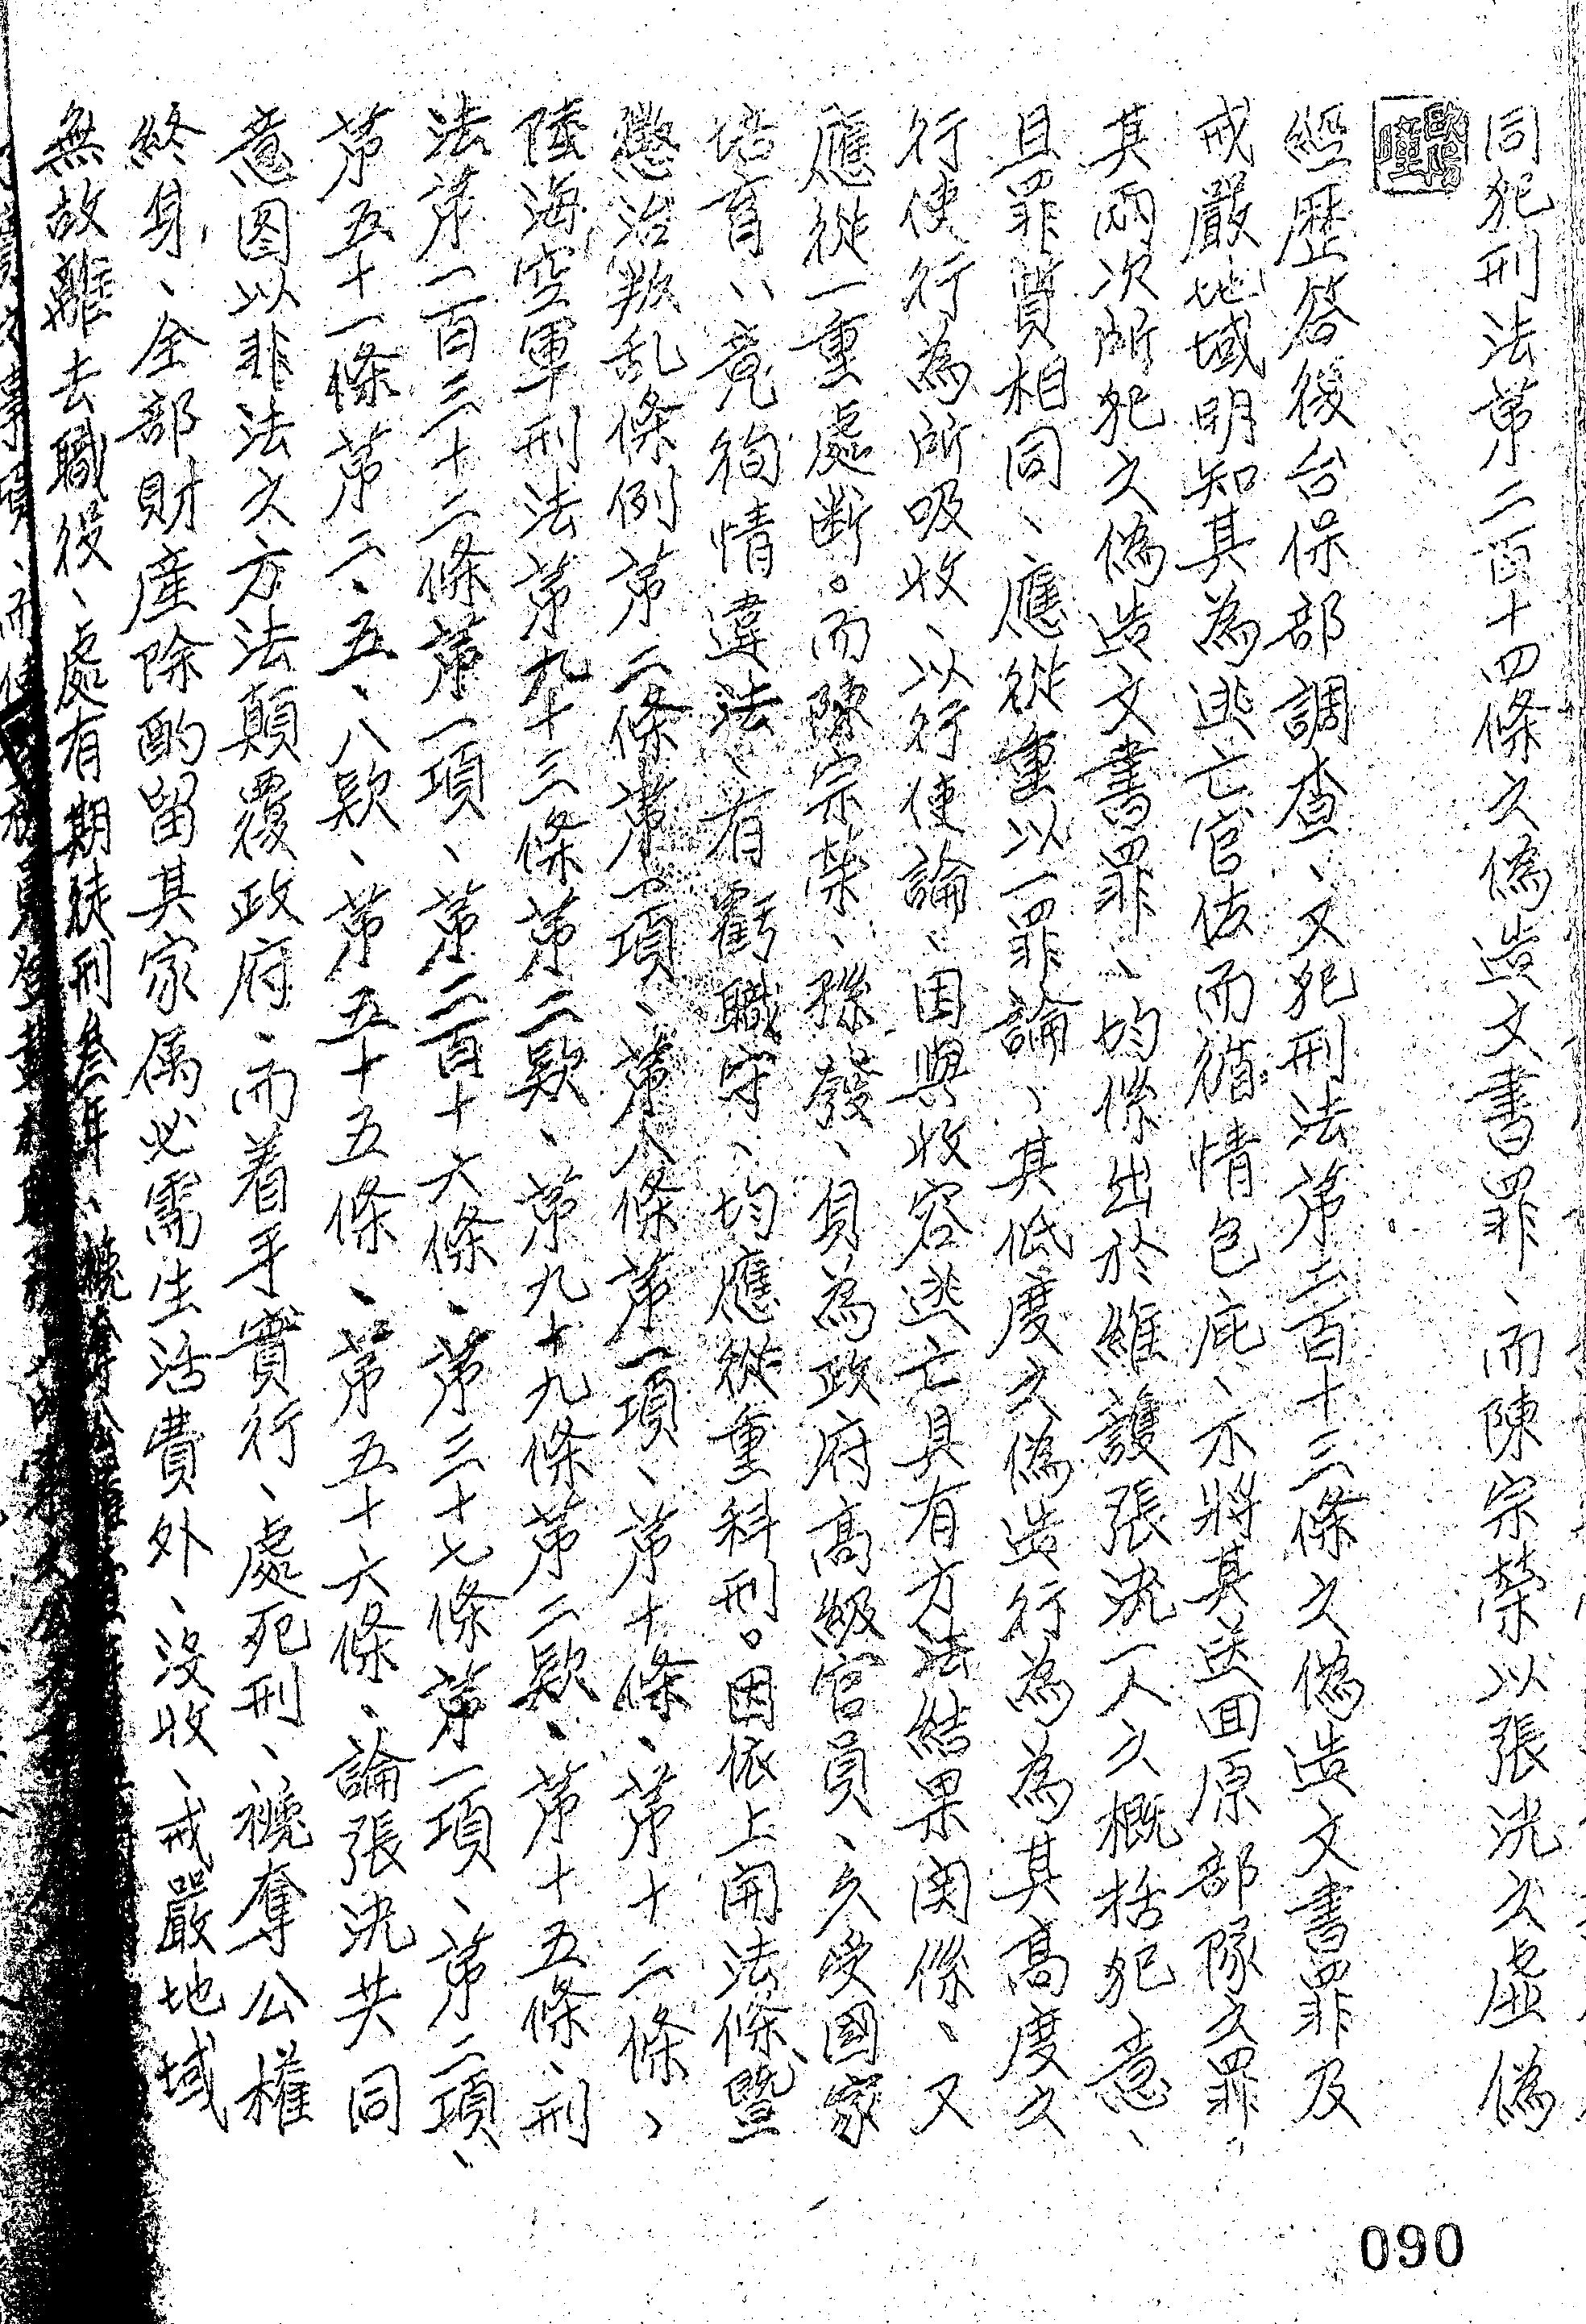 同犯刑法第二百十四條之偽造文書罪、而陳宗榮以張洸之虛偽
經歷答後台保部調查、又犯刑法第二百十三條之偽造文書罪及
戒嚴地域明知其為逃亡官佐而循情包庇、不將其送回原部隊之罪、
其兩次所犯之偽造文書罪、均係出於維護張洸一人之概括犯意、
且罪質相同、應從重以一罪論、其低度之偽造行為為其高度之
行使行為所吸收、以行使論、因與收容逃亡具有方法結果関係、又
應從一重處断。而陳宗榮、孫發、負為政府高級官員、久受國家
培育、竟徇情違法、有虧職守、均應從重科刑。因依上開法條、暨
懲治叛乱條例第二條第一項、第八條第一項、第十條、第十二條、
陸海空軍刑法第九十三條第二款、第九十九條第二款、第十五條、刑
法第一百三十二條第一項、第二百十六條、第三十七條第一項、第二項、
第五十一條第二、五、八款、第五十五條、第五十六條、論張洸共同
意图以非法之方法顛覆政府、而着手實行、處死刑、褫奪公權
終身、全部財產除酌留其家属必需生活費外、沒收、戒嚴地域
無故離去職役、處有期徒刑叁年、褫奪公權
090